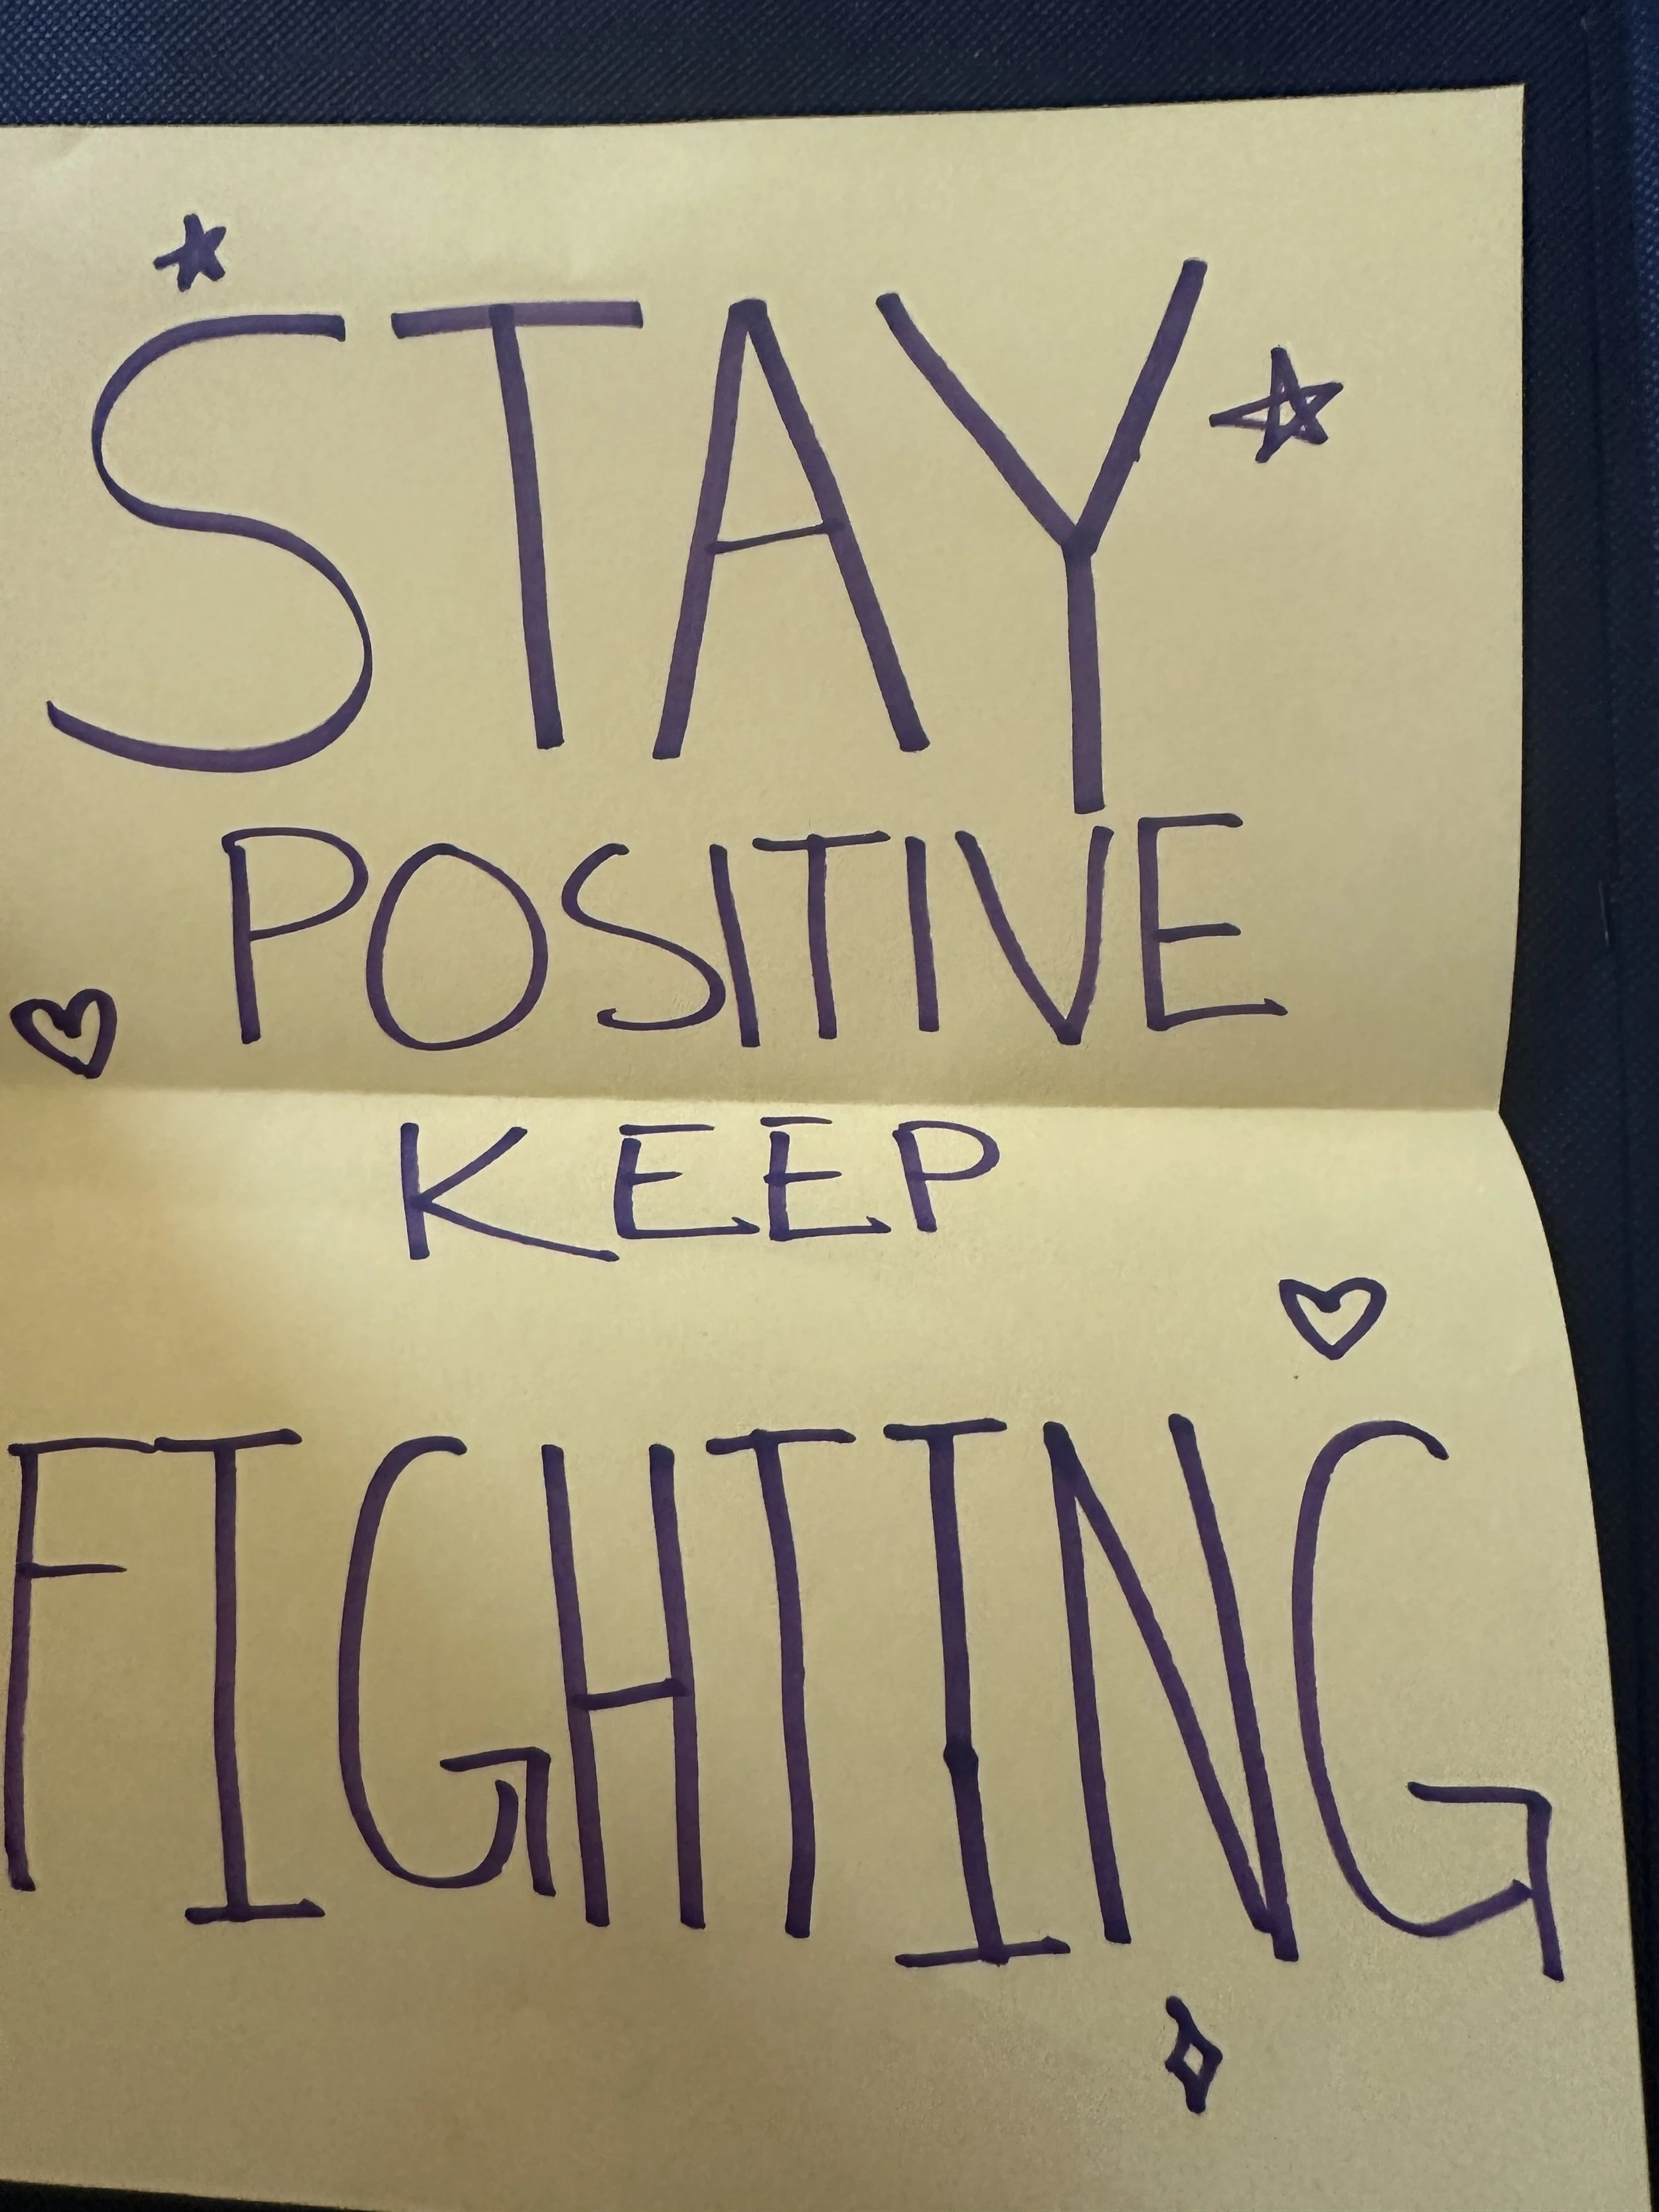 STAY
POSITIVE
KEEP
FIGHTING